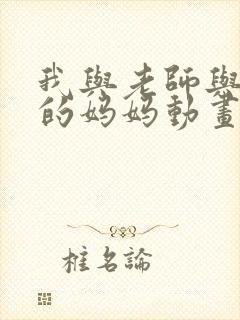 我與老師與
的媽媽動畫
椎名論